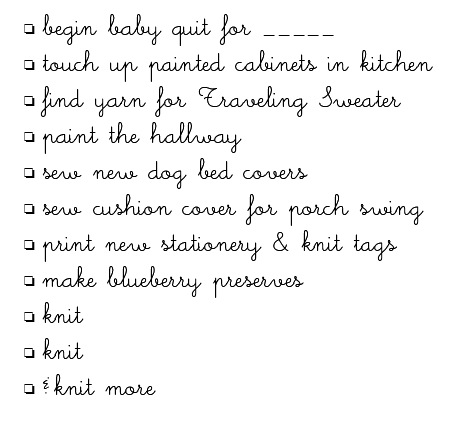 ❏ begin baby quit for _____
❏ touch up painted cabinets in kitchen
❏ find yarn for Traveling Sweater
❏ paint the hallway
❏ sew new dog bed covers
❏ sew cushion cover for porch swing
❏ print new stationery & knit tags
❏ make blueberry preserves
❏ knit
❏ knit
❏ & knit more